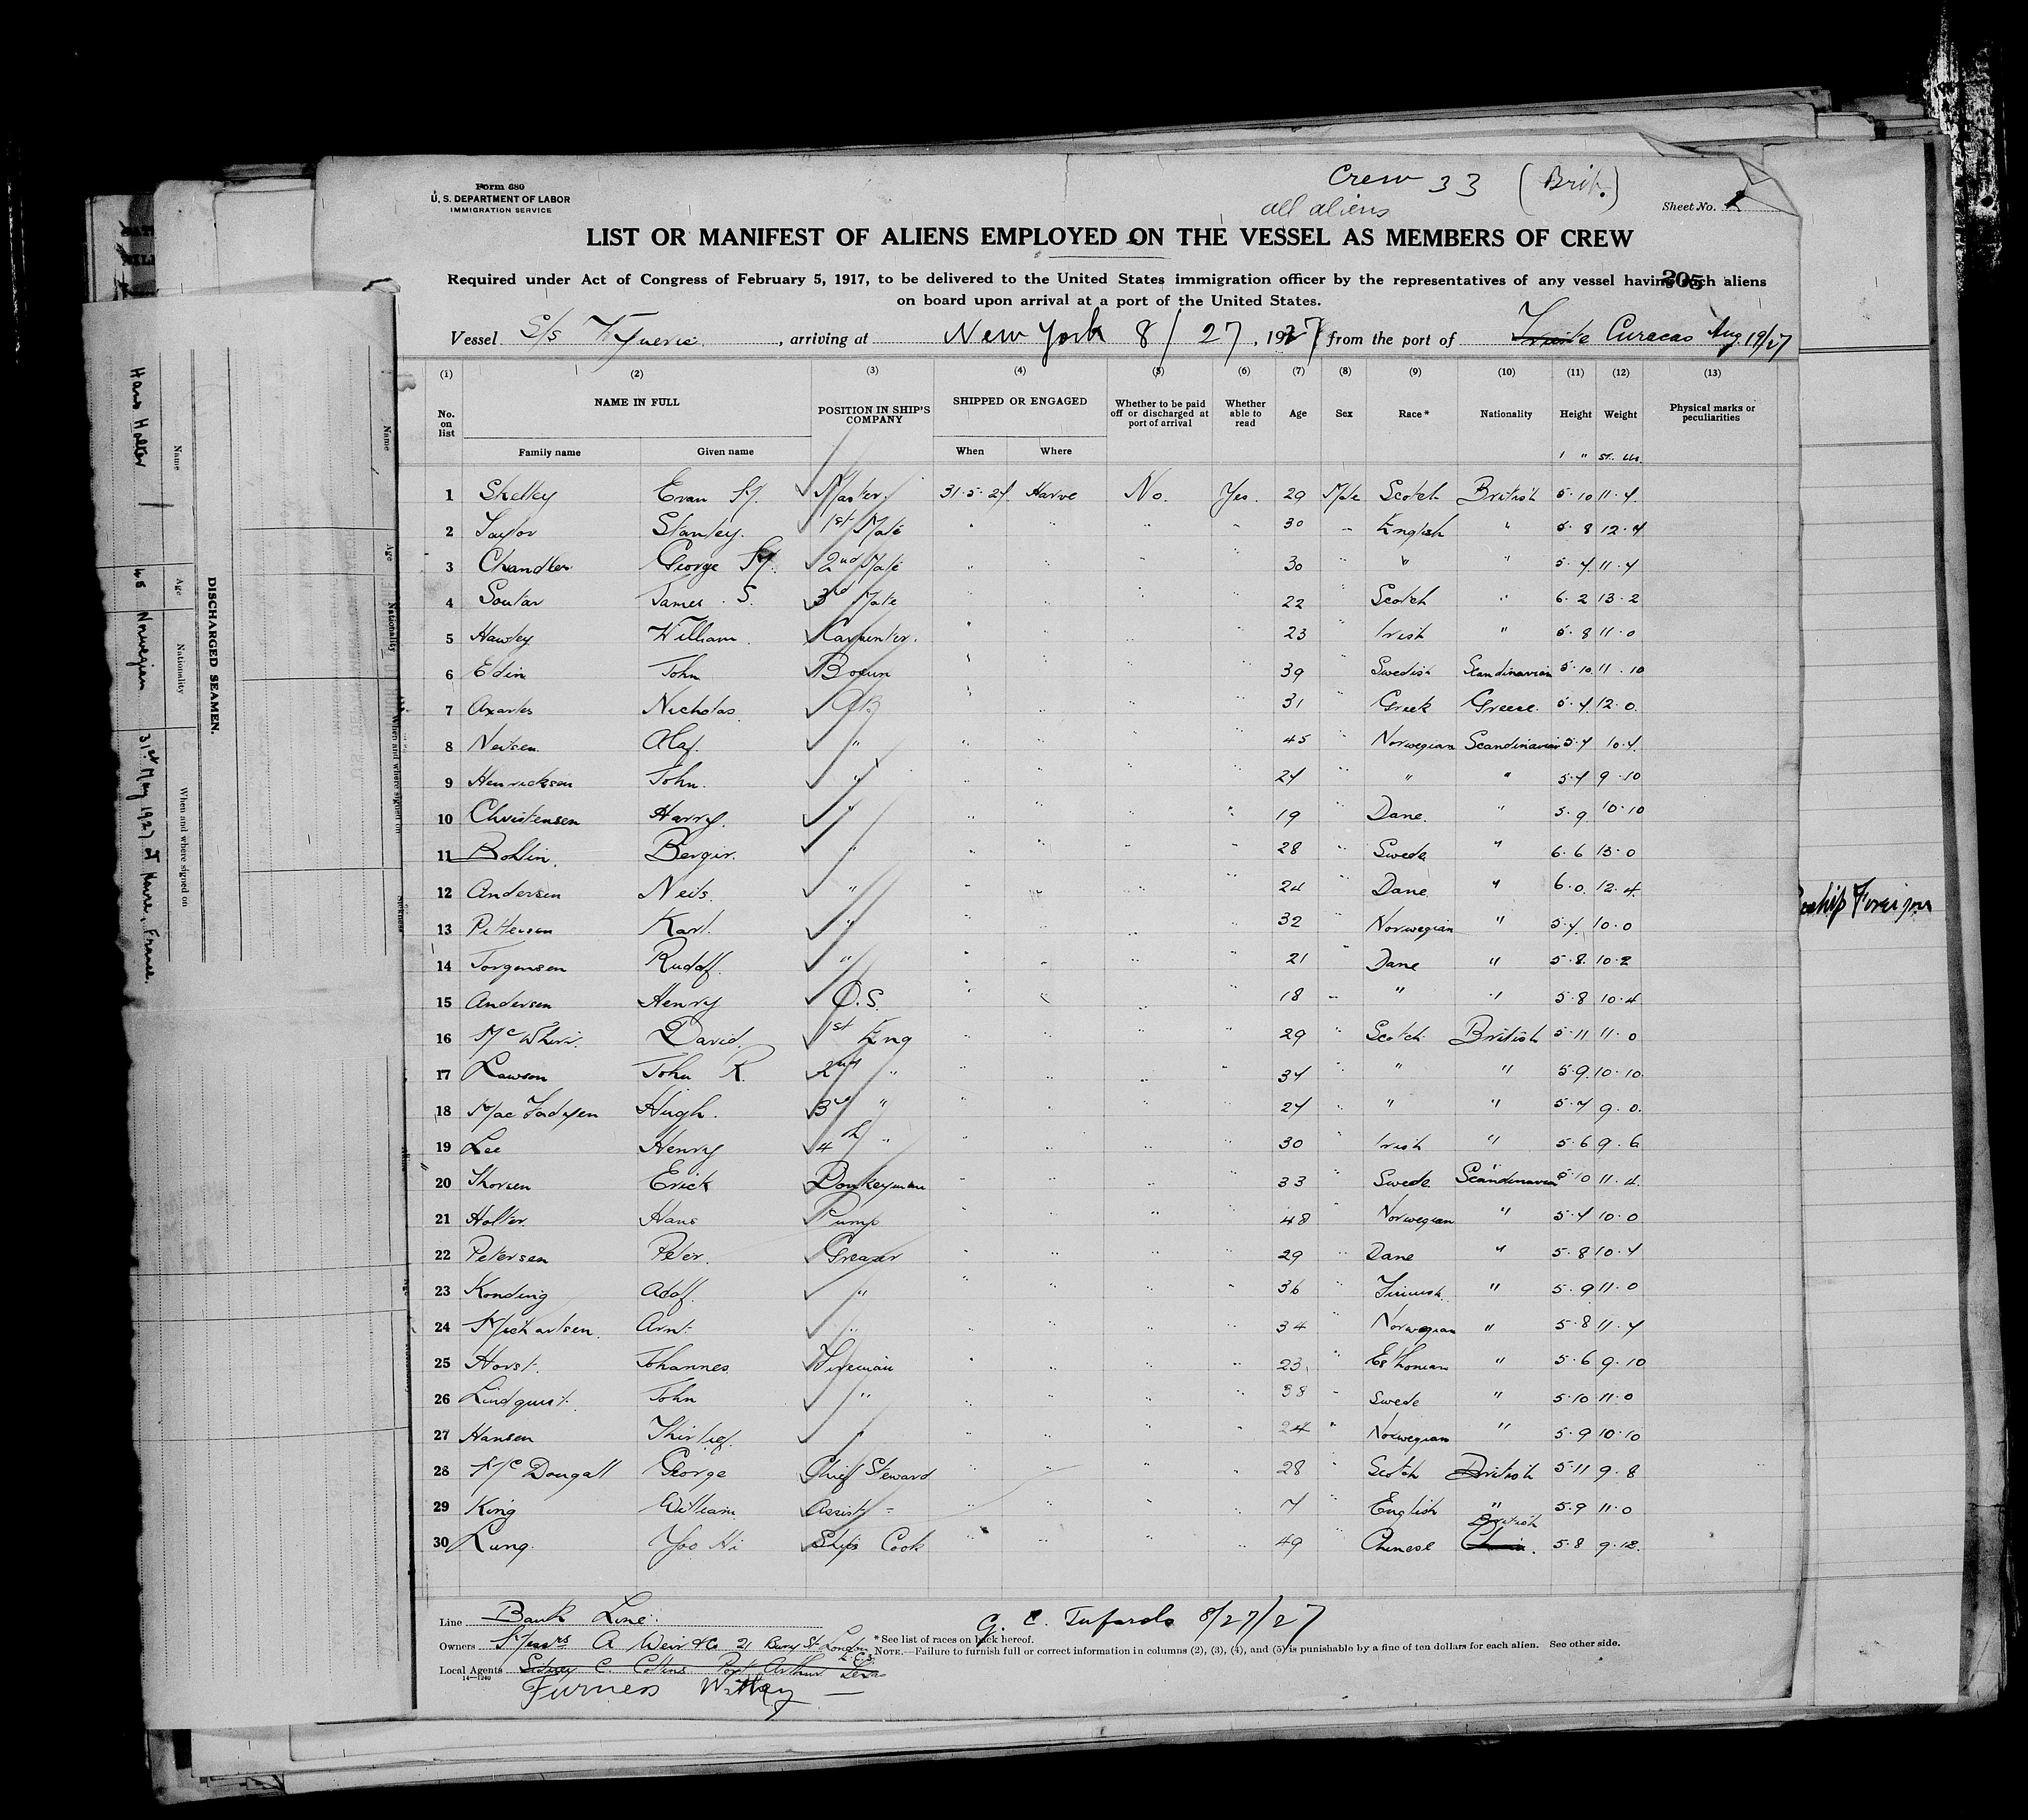 Form 680
U. S. DEPARTMENT OF LABOR
IMMIGRATION SERVICE
Crew 33 (Brit.)
all aliens
Sheet No. 1
LIST OR MANIFEST OF ALIENS EMPLOYED ON THE VESSEL AS MEMBERS OF CREW
Required under Act of Congress of February 5, 1917, to be delivered to the United States immigration officer by the representatives of any vessel having such aliens
on board upon arrival at a port of the United States.
205
Vessel S/s , arriving at New York 8/27, 1927 from the port of Curacao Aug 19/27
(1) (2) (3) (4) (5) (6) (7) (8) (9) (10) (11) (12) (13)
No. on list NAME IN FULL POSITION IN SHIP'S COMPANY SHIPPED OR ENGAGED Whether to be paid off or discharged at port of arrival Whether able to read Age Sex Race* Nationality Height Weight Physical marks or peculiarities
Family name Given name When Where ' " st. lbs.
1 Shelley Evan Master 31-5-27 Havre No. Yes. 29 Male Scotch British 5-10 11-4
2 Taylor Stanley. 1st Mate " " " " 30 " English " 5-8 12-4
3 Chandler George 2nd Mate " " " " 30 " " " 5-4 11-4
4 Soutar James S. 3rd Mate " " " " 22 " Scotch " 6-2 13-2
5 Hawley William Carpenter. " " " " 23 " Irish " 5-8 11-0
6 Edin John Bosun " " " " 39 " Swedish Scandinavian 5-10 11-10
7 Nicholas AB " " " " 31 " Greek Greece 5-4 12-0
8 Neilsen Olaf. " " " " " 45 " Norwegian Scandinavian 5-7 10-4
9 Henrickson John. " " " " " 24 " " " 5-7 9-10
10 Christensen Harry. " " " " " 19 " Dane. " 5-9 10-10
11 Bohlin. Bergir. " " " " " 28 " Swede " 6-6 13-0
12 Andersen Neils. " " " " " 24 " Dane " 6-0 12-4
13 Pettersen Karl. " " " " " 32 " Norwegian " 5-7 10-0
14 Jorgensen Rudolf. " " " " " 21 " Dane " 5-8 10-2
15 Andersen Henry O.S. " " " " 18 " " " 5-8 10-4
16 David. 1st Eng " " " " 29 " Scotch British 5-11 11-0
17 Lawson John R. 2nd " " " " " 34 " " " 5-9 10-10
18 MacFadyen Hugh. 3rd " " " " " 24 " " " 5-7 9-0
19 Lee Henry 4th " " " " " 30 " Irish " 5-6 9-6
20 Thorsen Erick Donkeyman " " " " 33 " Swede Scandinavian 5-10 11-4
21 Holter Hans Pump " " " " 48 " Norwegian " 5-4 10-0
22 Petersen Peter. Greaser " " " " 29 " Dane " 5-8 10-4
23 Konding Adolf. " " " " " 36 " Finnish " 5-9 11-0
24 Michaelsen Arnt " " " " " 34 " Norwegian " 5-8 11-4
25 Horst. Johannes Fireman " " " " 23 " Esthonian " 5-6 9-10
26 Lindquist John " " " " " 38 " Swede " 5-10 11-0
27 Hansen " " " " " 24 " Norwegian " 5-9 10-10
28 McDougall George Chief Steward " " " " 28 " Scotch British 5-11 9-8
29 King William Assist " " " " " English " 5-9 11-0
30 Lung. Yoo Hi Ship's Cook " " " " 49 " Chinese British 5-8 9-12
Line Bank Line
Owners Messrs A Weir & Co 21 Bury St London E.C.3
Local Agents Sidney C. Collins Port Arthur Texas
14—1240
Furness Withy
G. C. Tufardo 8/27/27
* See list of races on back hereof.
NOTE.—Failure to furnish full or correct information in columns (2), (3), (4), and (5) is punishable by a fine of ten dollars for each alien. See other side.
DISCHARGED SEAMEN.
Name Age Nationality When and where signed on
Hans Holter 48 Norwegian 31st May 1927 at Havre, France.
Name
Age
Nationality
When and where signed on
Foreign